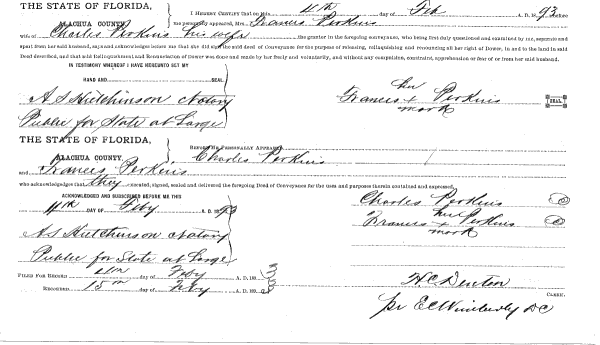 THE STATE OF FLORIDA,
ALACHUA COUNTY.
I HEREBY CERTIFY that on this 11th day of Feb A. D. 18 93, before
me personally appeared, Mrs. Frances Perkins
wife of Charles Perkins his wife the grantor in the foregoing conveyance, who being first duly questioned and examined by me, separate and
apart from her said husband, says and acknowledges before me that she did sign the said deed of Conveyance for the purpose of releasing, relinquishing and renouncing all her right of Dower, in and to the land in said
Deed described, and that said Relinquishment and Renunciation of Dower was done and made by her freely and voluntarily, and without any compulsion, constraint, apprehension or fear of or from her said husband.
IN TESTIMONY WHEREOF I HAVE HEREUNTO SET MY
HAND AND SEAL.
A S Hutchinson Notary
Public for State at Large
her
Frances + Perkins
mark
SEAL
THE STATE OF FLORIDA,
ALACHUA COUNTY.
BEFORE ME PERSONALLY APPEARED Charles Perkins
and Frances Perkins
who acknowledges that they executed, signed, sealed and delivered the foregoing Deed of Conveyance for the uses and purposes therein contained and expressed.
ACKNOWLEDGED AND SUBSCRIBED BEFORE ME THIS
11th DAY OF Feby A. D. 1893
A S Hutchinson Notary
Public for State at Large
Charles Perkins
her
Frances + Perkins
mark
FILED FOR RECORD 11th day of Feby A. D. 189
RECORDED 15th day of Feby A. D. 189
H C Denton
CLERK.
pr E C Wimberly D C